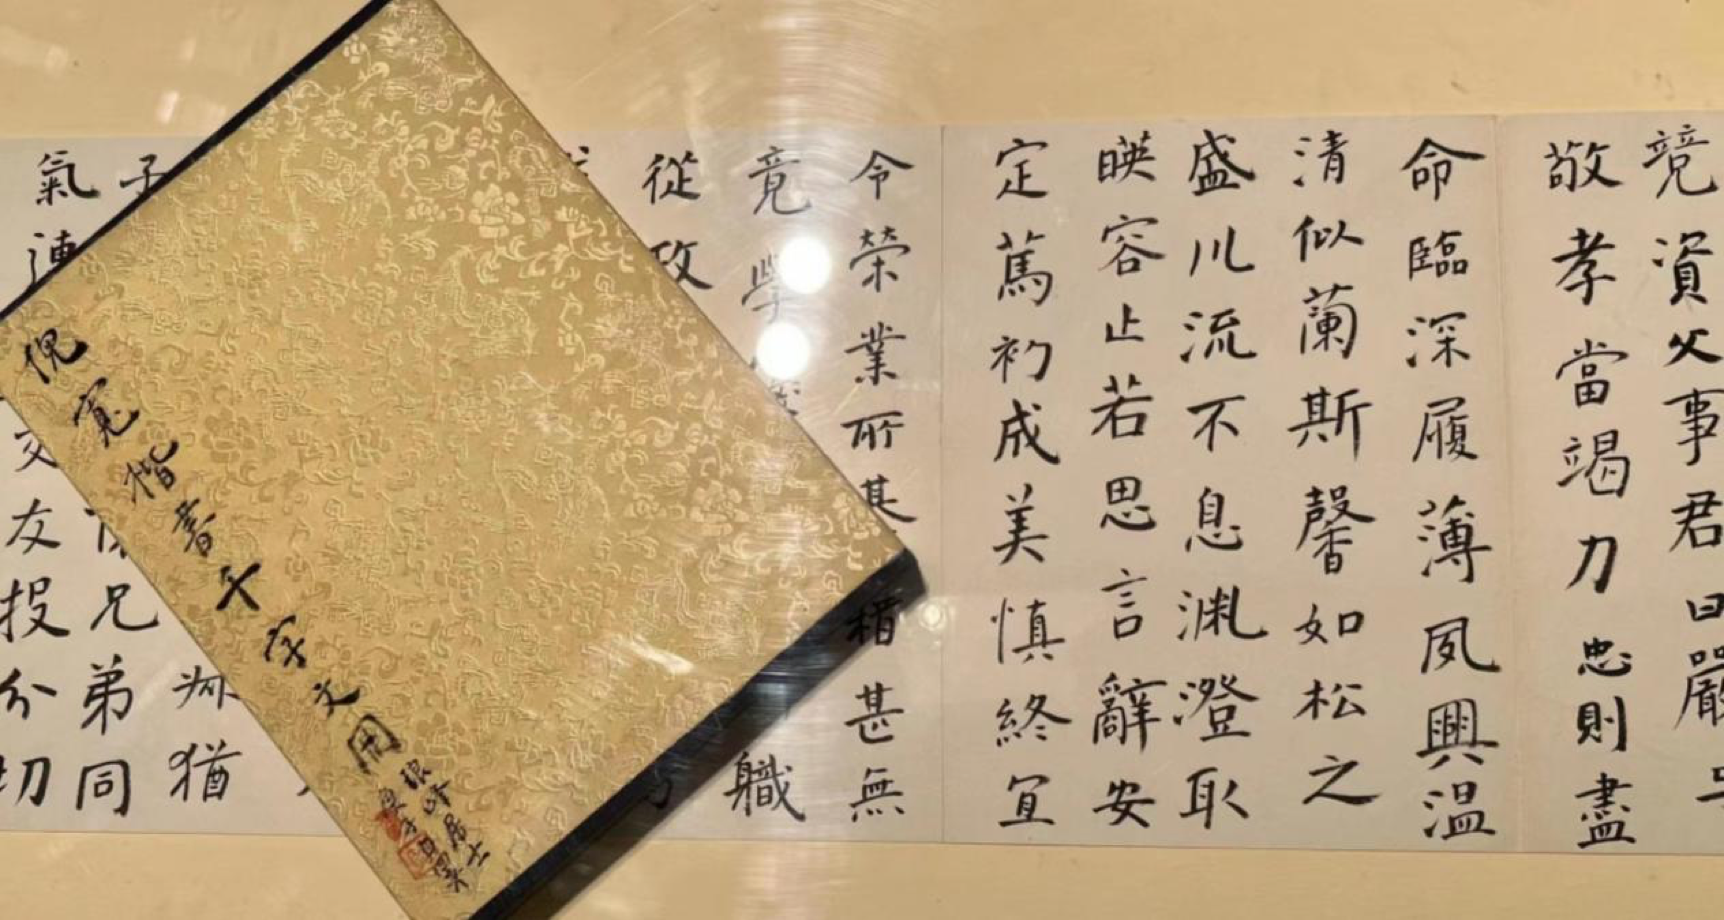 競資父事君曰嚴与
敬孝當竭力忠則盡
命臨深履薄夙興温
清似蘭斯馨如松之
盛川流不息淵澄取
暎容止若思言辭安
定篤初成美慎終宜
令榮業所基籍甚無
竟學職
從政
猶
子懷兄弟同
氣連交友投分切
倪寬楷書千字文冊